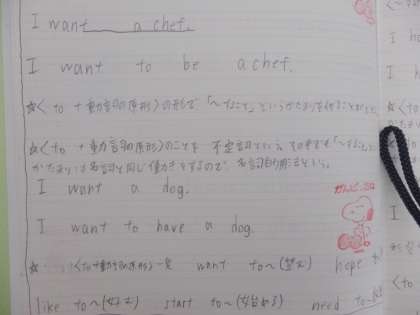 I want a chef.
I want to be a chef.
☆<to +動詞の原形>の形で「〜すること」というかたまりを作ることができる
☆<to +動詞の原形>のことを 不定詞という。その中でも「〜すること」の
かたまりは名詞と同じ働きをするので、名詞的用法という。
I want a dog.
I want to have a dog.
<to+動詞の原形>一覧 want to〜(望む) hope
like to〜(好き) start to〜(始める) need to〜